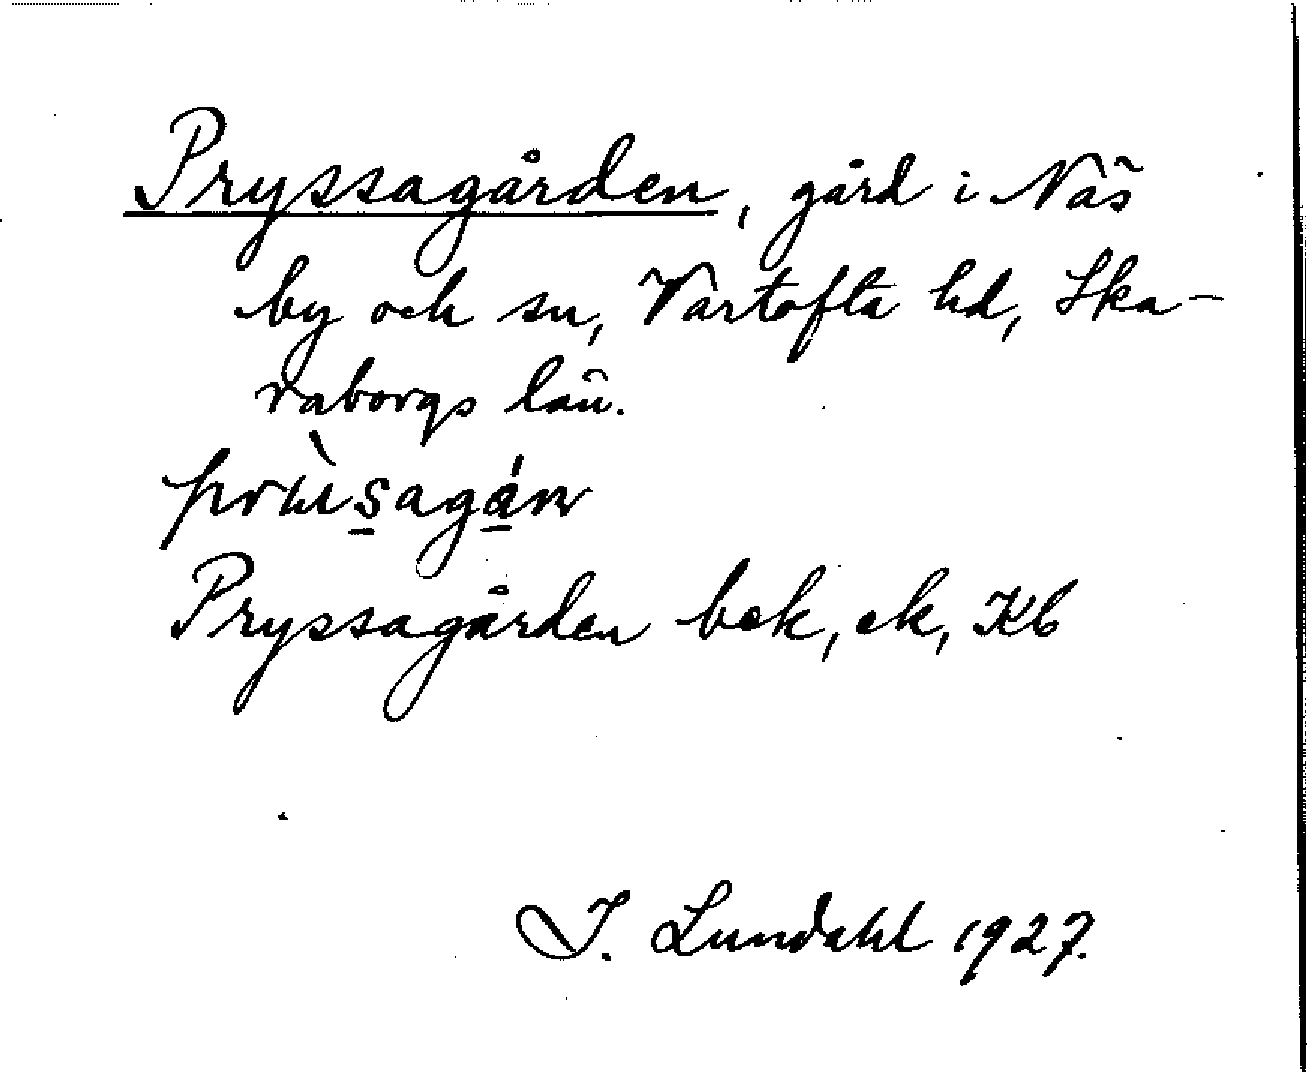 Pryssagården, gård i Näs
by och sn, Vartofta hd, Ska-
raborgs län.
Pryssagården bek, ek, Kb
I. Lundahl 1927.